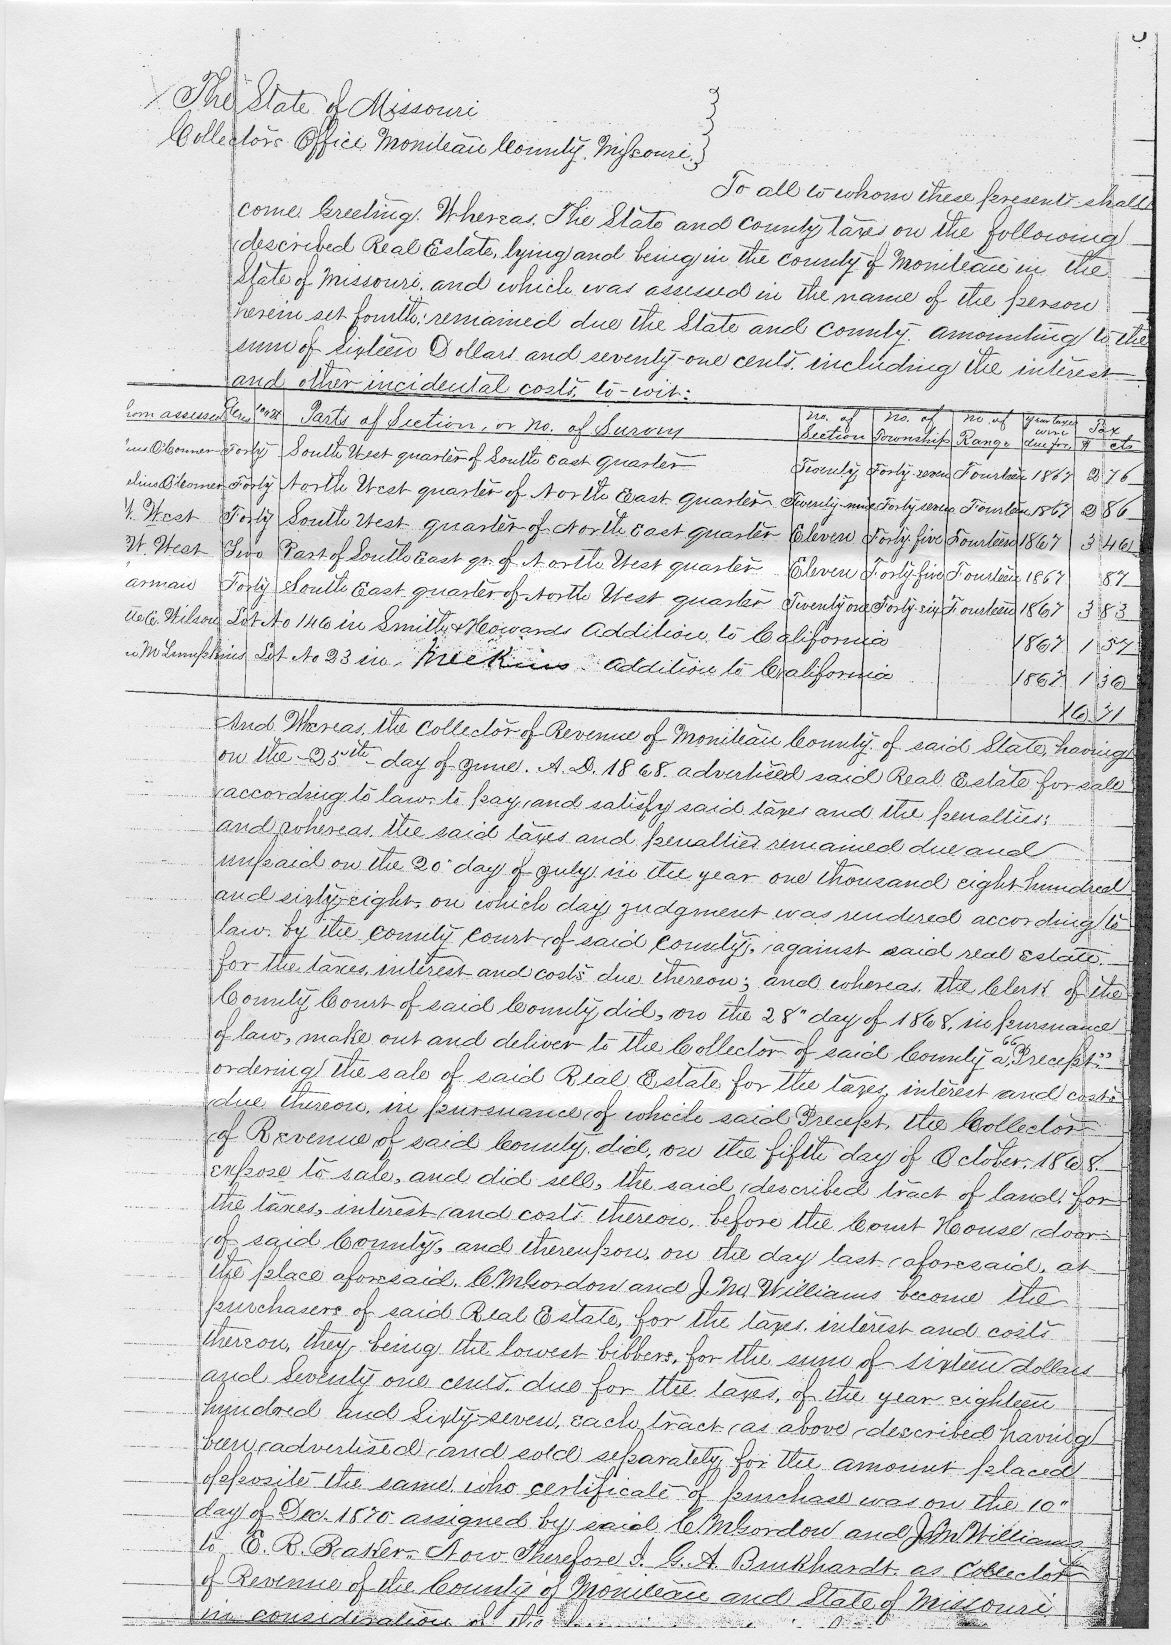 The State of Missouri
Collectors Office Moniteau County, Missouri.
To all to whom these present shall
come Greeting. Whereas. The State and County taxes on the following
described Real Estate, lying and being in the county of Moniteau in the
State of Missouri, and which was assessed in the name of the person
herein set fourth; remained due the State and County amounting to the
sum of Sixteen Dollars and seventy-one cents, including the interest
and other incidental costs, to-wit:
hom assessed Acres Parts of Section, or No. of Survey No. of Section No. of Township No of Range year taxes were due for Tax $ cts
O'Conner Forty South West quarter of South East quarter Twenty Forty-seven Fourteen 1867 2 76
elius O'Conner Forty North West quarter of North East quarter Twenty-nine Forty seven Fourteen 1867 2 86
W. West Forty South West quarter of North East quarter Eleven Forty five Fourteen 1867 3 46
W. West Two Part of South East qr. of North West quarter Eleven Forty five Fourteen 1867 87
arman Forty South East quarter of North West quarter Twenty one Forty-six Fourteen 1867 3 83
C. Wilson Lot No 146 in Smith & Howards Addition to California 1867 1 57
M Lumpkins Lot No 23 in Meekins Addition to California 1867 1 36
16 71
And Whereas, the Collector of Revenue of Moniteau County of said State, having
on the 25th day of June. A.D. 1868. advertised said Real Estate for sale
according to law to pay and satisfy said taxes and the penalties;
and whereas the said taxes and penalties remained due and
unpaid on the 20" day of July in the year one thousand eight hundred
and sixty-eight, on which day judgment was rendered according to
law. by the County Court of said County, against said real Estate
for the taxes, interest and costs due thereon; and whereas, the Clerk of the
County Court of said County, did, on the 28" day of 1868, in pursuance
of law, make out and deliver to the Collector of said County a "Precept"
ordering the sale of said Real Estate for the taxes, interest and costs
due thereon, in pursuance of which said Precept, the Collector
of Revenue of said County, did, on the fifth day of October, 1868.
expose to sale, and did sell, the said described tract of land, for
the taxes, interest and costs thereon, before the Court House door
of said County, and thereupon, on the day last aforesaid, at
the place aforesaid. C M Gordon and J. M Williams become the
purchasers of said Real Estate, for the taxes, interest and costs
thereon, they being the lowest bibbers, for the sum of sixteen dollars
and Seventy one cents, due for the taxes, of the year eighteen
hundred and Sixty-seven, each tract as above described having
been advertised and sold separately for the amount placed
opposite the same. who certificate of purchase was on the 10"
day of Dec. 1870 assigned by said C M Gordon and J. M Williams
to E. R. Baker. Now Therefore I. G. A. Burkhardt as Collector
of Revenue of the County of Moniteau and State of Missouri
in consideration of the